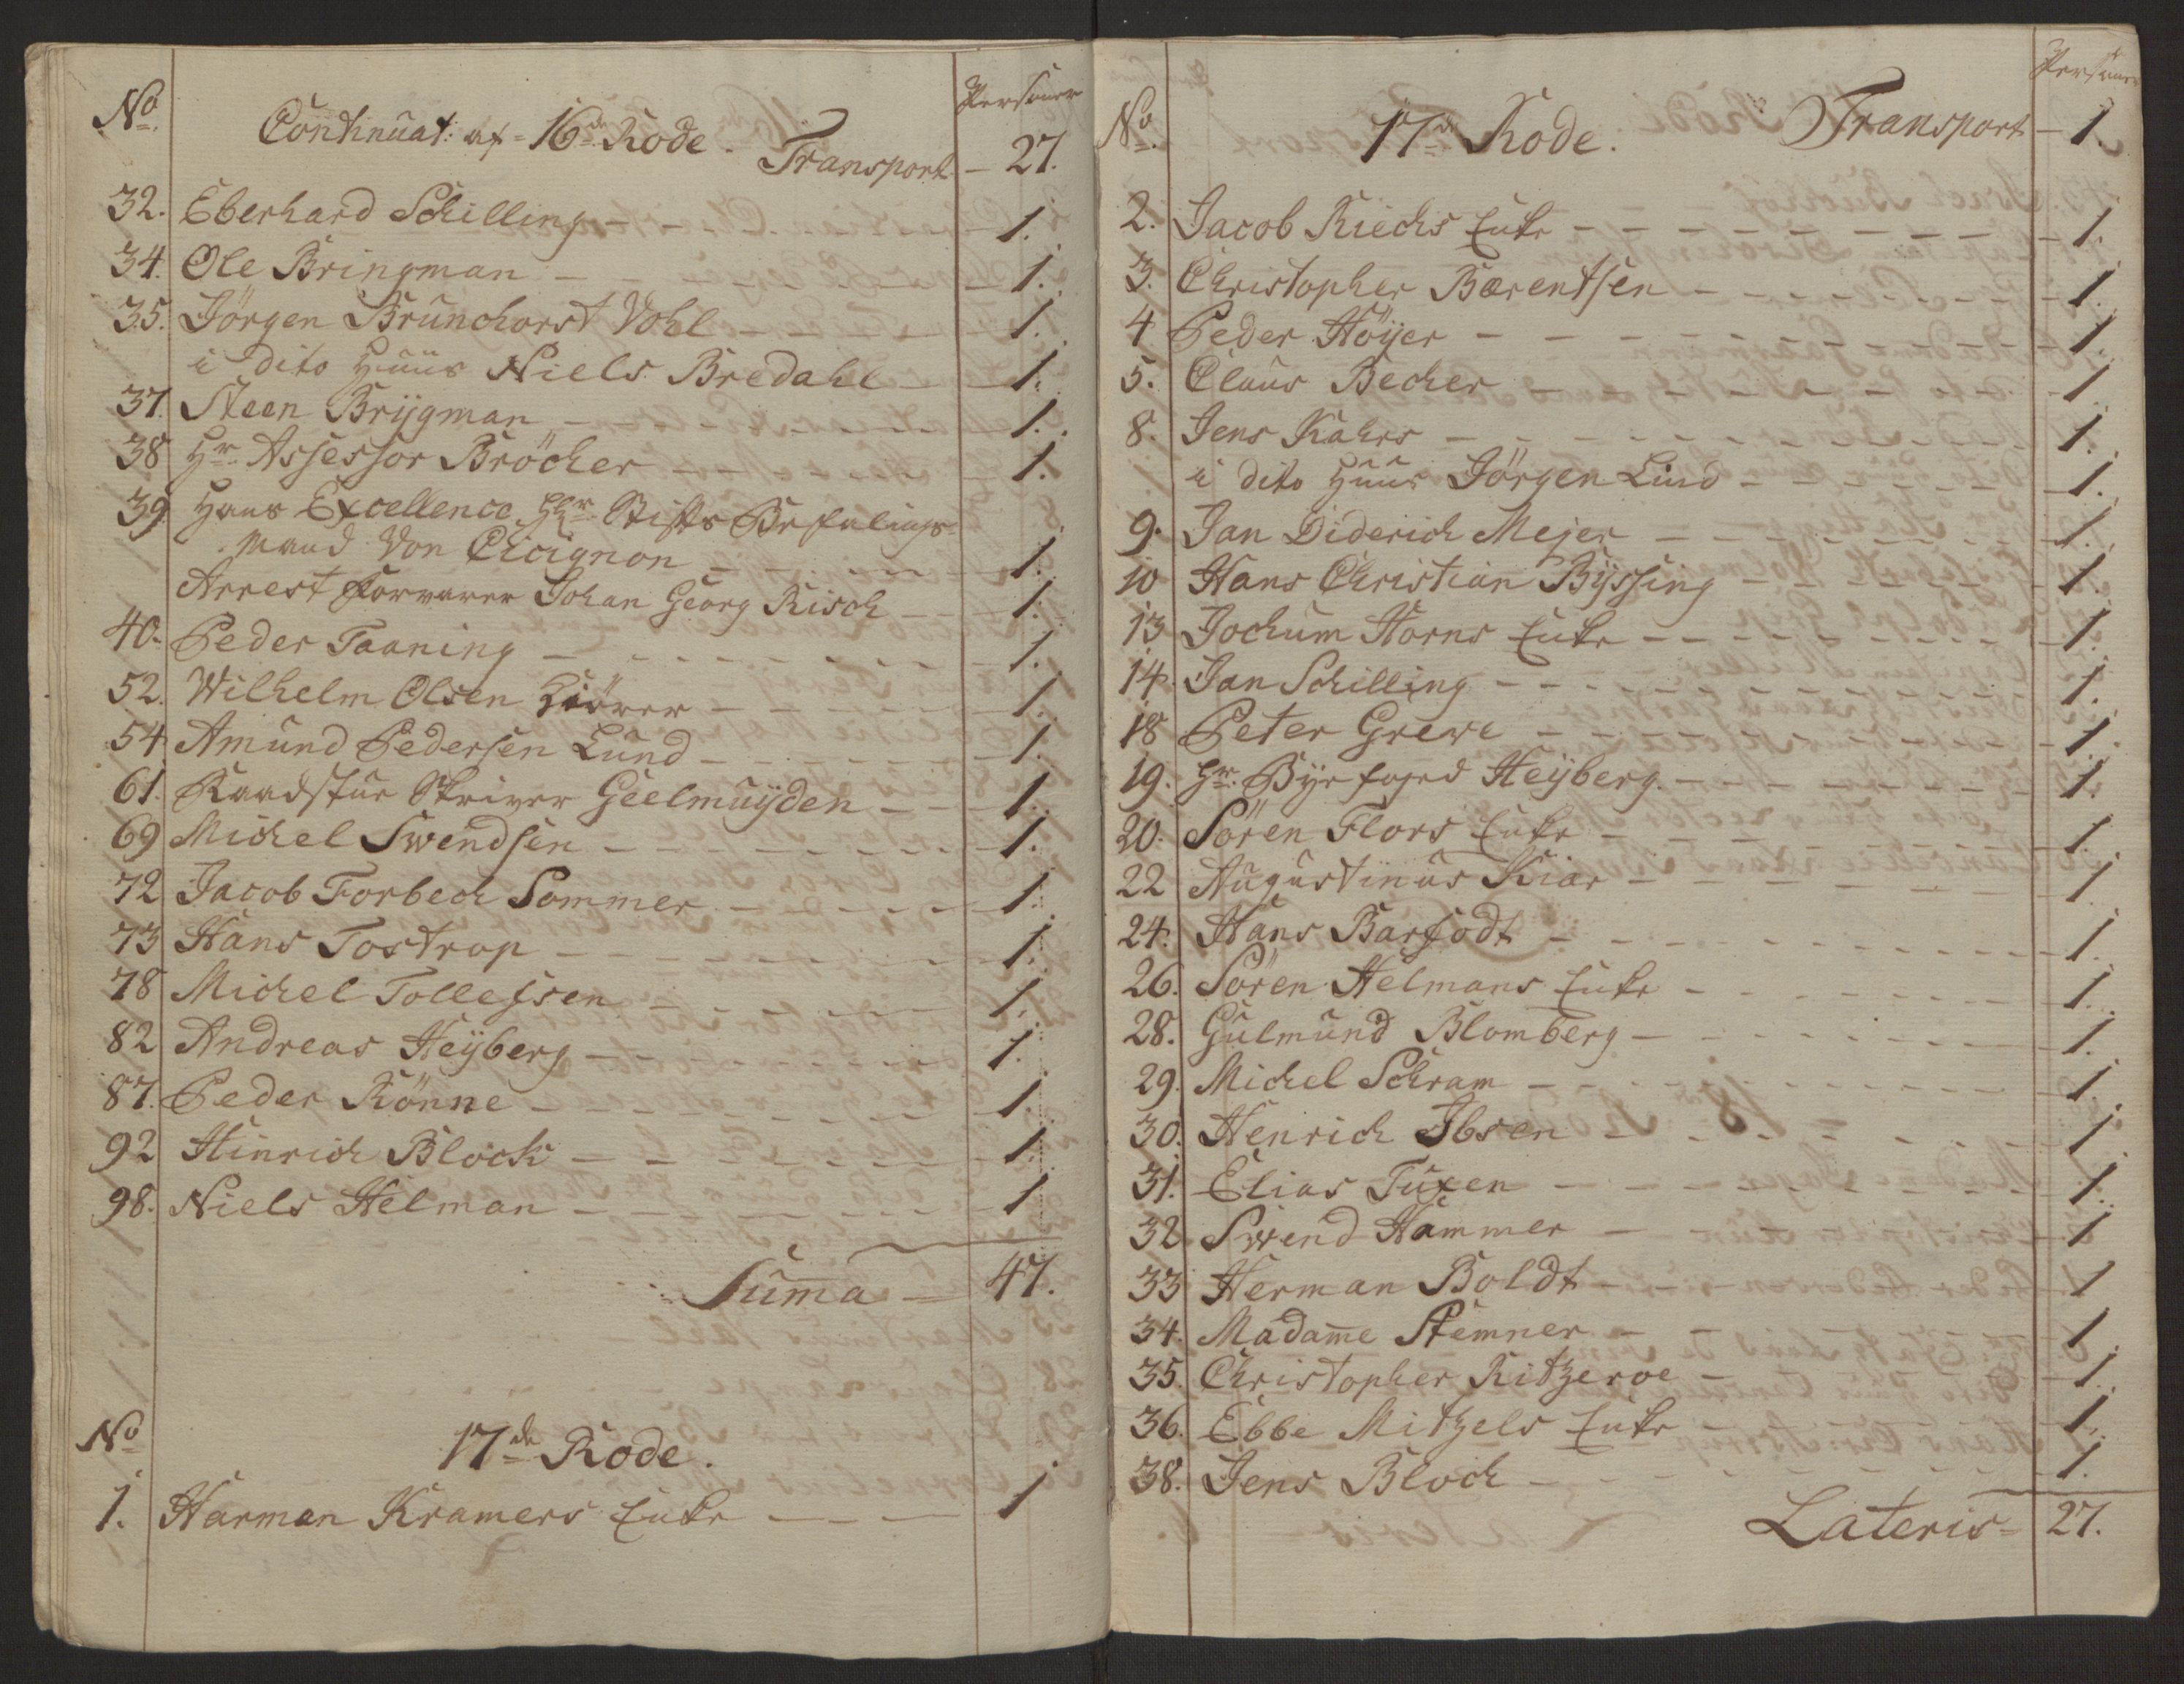 No
Personer
Continuat: af 16de Rode.
Transport - 27.
32. Eberhard Schilling - 1.
34. Ole Bringman - 1.
35. Jörgen Brunchorst Vohl - 1.
i dito Huus Niels Bredahl - 1.
37. Steen Brÿgman - 1.
38 Hr Assessor Bröcher - 1.
39 Hans Excellence Hr Stifts Befalings
mand Von Cicignon - 1.
Arrest Forvarer Johan Georg Risch - 1.
40. Peder Taaning - 1.
52. Wilhelm Olsen - 1.
54 Amund Pedersen Lund - 1.
61. Raadstue Skriver Geelmuÿden - 1.
69 Michel Swendsen - 1.
72 Jacob Forbech Sommer - 1.
73 Hans Tostrop - 1.
78 Michel Tollefsen - 1.
82 Andreas Heÿberg - 1.
87. Peder Rönne - 1.
92 Hinrich Block - 1.
98. Niels Helman - 1
Suma - 47.
No
17de Rode.
1. Harman Kramers Enke - 1
Personer
No
17de Rode. Transport - 1.
2. Jacob Riechs Enke - 1.
3. Christopher Bærentsen - 1.
4 Peder Höÿer - 1.
5. Claus Becher - 1.
8. Jens Kahrs - 1.
i dito Huus Jörgen Lind - 1.
9. Jan Diderich Mejer - 1.
10 Hans Christian Bÿssing - 1.
13 Jochum Horns Enke - 1.
14. Jan Schilling - 1.
18 Peter Greve - 1.
19. Hr. Bÿe foged Heÿberg - 1.
20. Sören Flors Enke - 1.
22 Augustinus Kiar - 1.
24. Hans Barfodt - 1.
26. Sören Helmans Enke - 1.
28. Gulmund Blomberg - 1.
29. Michel Schram - 1.
30. Henrich Ibsen - 1
31. Elias Tuxen - 1.
32 Swend Hammer - 1
33 Herman Boldt - 1
34. Madame Stemner - 1.
35. Christopher Ritzeroe - 1.
36. Ebbe Mitzels Enke - 1.
38. Jens Bloch - 1.
Lateris - 27.